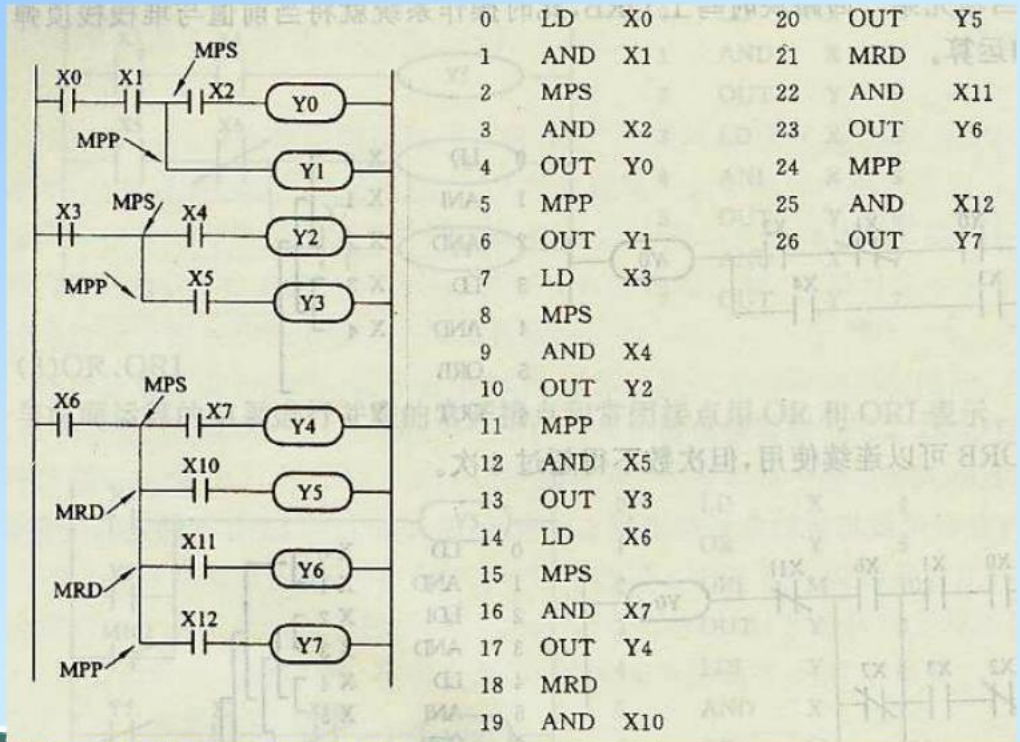 MPS
X0 X1 X2 Y0
MPP Y1
X3 MPS X4 Y2
MPP X5 Y3
X6 MPS X7 Y4
X10 Y5
MRD
X11 Y6
MRD
X12 Y7
MPP
0 LD X0
1 AND X1
2 MPS
3 AND X2
4 OUT Y0
5 MPP
6 OUT Y1
7 LD X3
8 MPS
9 AND X4
10 OUT Y2
11 MPP
12 AND X5
13 OUT Y3
14 LD X6
15 MPS
16 AND X7
17 OUT Y4
18 MRD
19 AND X10
20 OUT Y5
21 MRD
22 AND X11
23 OUT Y6
24 MPP
25 AND X12
26 OUT Y7